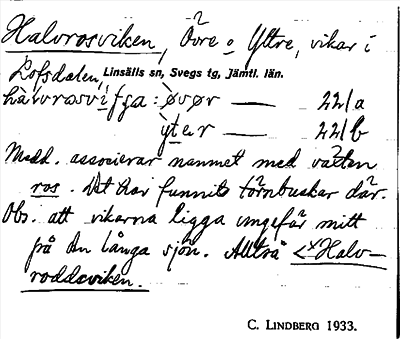 Halvrosviken, Övre o Yttre, vikar i
Lofsdalen, Linsälls sn, Svegs tg, Jämtl. län.
hàlvrosvi̱fga: ø̀vør — 22/a
ỳter — 22/b
Medd. associerar namnet med växten
ros. Det har funnits törnbuskar där.
Obs. att vikarna ligga ungefär mitt
på den långa sjön. Alltså <*Halv-
roddsviken.
C. LINDBERG 1933.